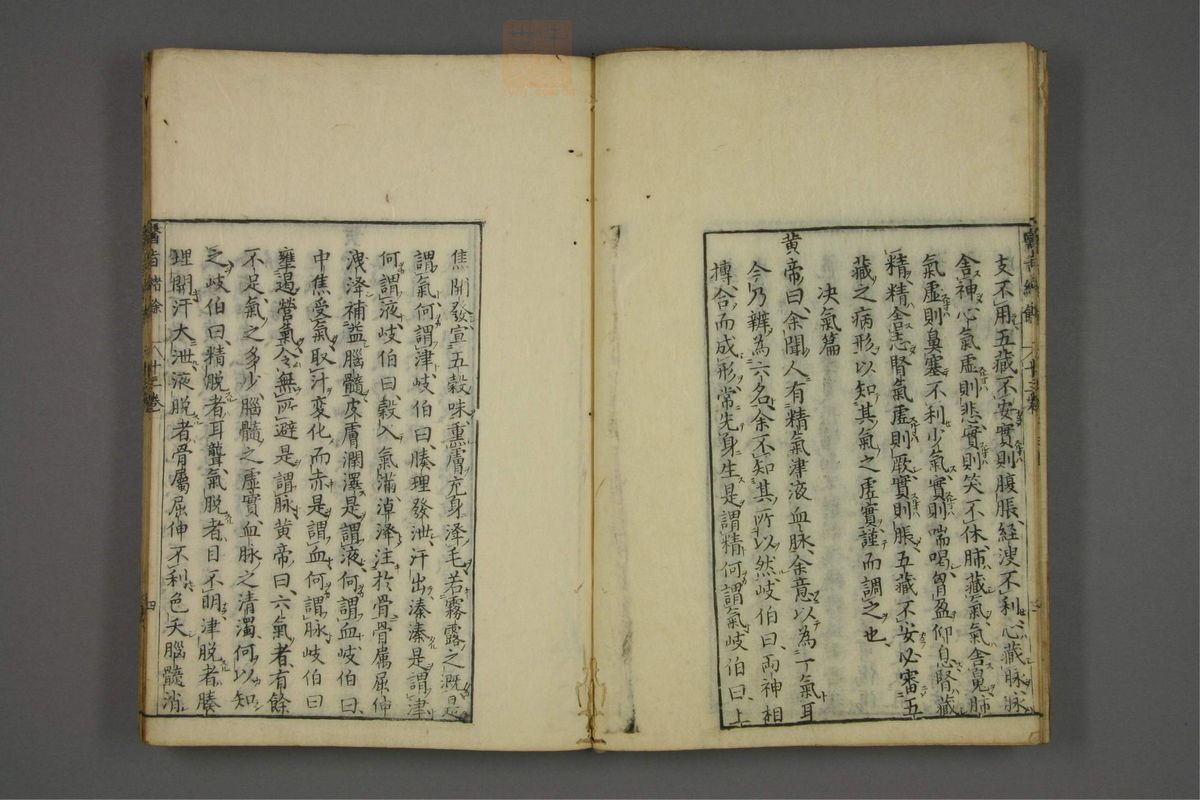 支不用五藏不安實則腹脹経溲不利心藏脉脉
舎神心氣虚則悲實則笑不休肺藏氣氣舎鬼肺
氣虚則鼻塞不利少氣實則喘喝胷盈仰息腎藏
精精舎志腎氣虚則厥實則脹五藏不安必審五
藏之病形以知其氣之虚實謹而調之也
決氣篇
黄帝曰余聞人有精氣津液血脉余意以為一氣耳
今乃辨為六名余不知其所以然岐伯曰両神相
搏合而成形常先身生是謂精何謂氣岐伯曰上
焦開發宣五穀味熏膚充身澤毛若霧露之漑是
謂氣何謂津岐伯曰腠理發泄汗出溱溱是謂津
何謂液岐伯曰穀入氣滿淖澤注於骨骨屬屈伸
洩澤補益腦髓皮膚潤澤是謂液何謂血岐伯曰
中焦受氣取汁変化而赤是謂血何謂脉岐伯曰
壅遏營氣令無所避是謂脉黄帝曰六氣者有餘
不足氣之多少腦髓之虚實血脉之清濁何以知
之岐伯曰精脱者耳聾氣脱者目不明津脱者腠
理開汗大泄液脱者骨屬屈伸不利色夭腦髓消
緒餘
四